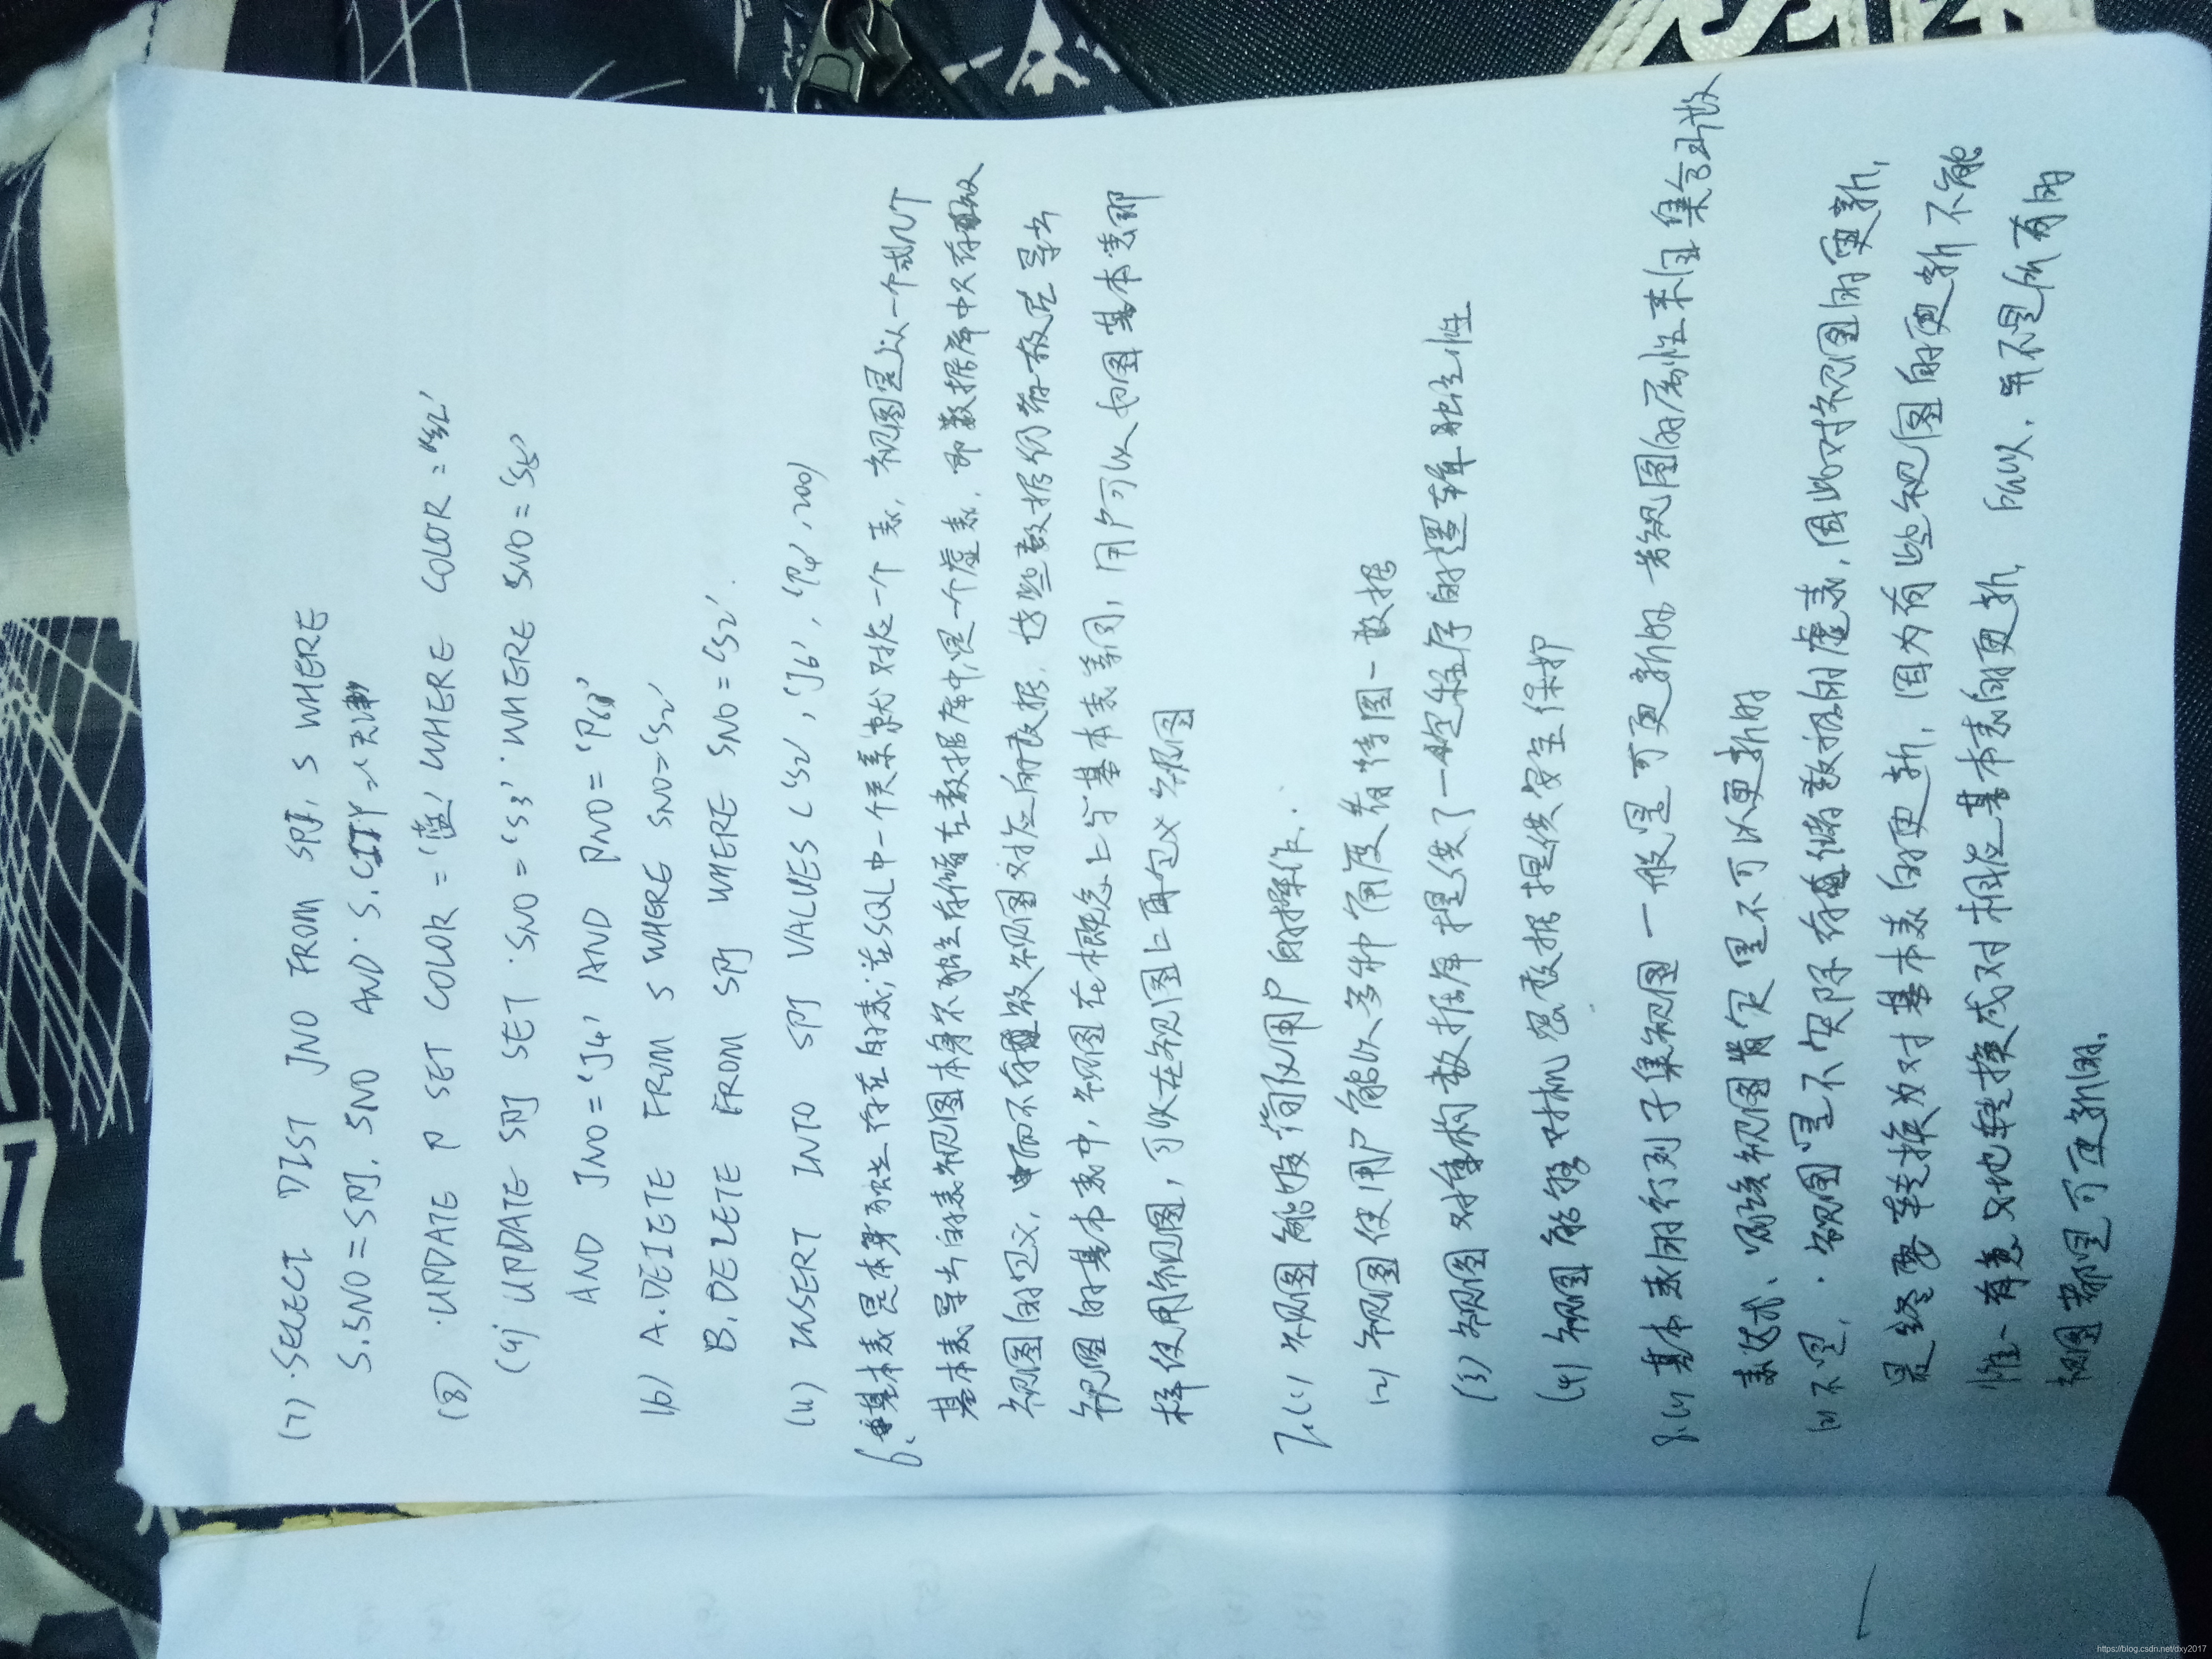 (7) SELECT DIST JNO FROM SPJ, S WHERE
S.SNO=SPJ.SNO AND S.CITY='天津'
(8) UPDATE P SET COLOR='蓝' WHERE COLOR='红'
(9) UPDATE SPJ SET SNO='S3' WHERE SNO='S5'
AND JNO='J4' AND PNO='P6'
10) A.DELETE FROM S WHERE SNO='S2'
B.DELETE FROM SPJ WHERE SNO='S2'.
(11) INSERT INTO SPJ VALUES ('S2','J6','P4',200)
6.基本表是本身独立存在的表,在SQL中一个关系就对应一个表,视图是从一个或几个
基本表导出的表视图本身不独立存储在数据库中,是一个虚表,即数据库中只存放
视图的定义,而不存放视图对应的数据,这些数据仍存放在导出
视图的基本表中,视图在概念上与基本表等同,用户可以如同基本表那
样使用视图,可以在视图上再定义视图
7.(1) 视图能够简化用户的操作.
(2) 视图使用户能以多种角度看待同一数据
(3) 视图对重构数据库提供了一定程序的逻辑独立性
(4) 视图能够对机密数据提供安全保护
8.(1) 基本表的行列子集视图一般是可更新的 若视图的属性来自集合函数
表达式、则该视图肯定是不可以更新的
(2) 不是. 视图是不实际存储数据的虚表,因此对视图的更新,
最终要转换为对基本表的更新,因为有些视图的更新不能
惟一有意义地转换成对相应基本表的更新, 所以,并不是所有的
视图都是可更新的.
https://blog.csdn.net/dxy2017